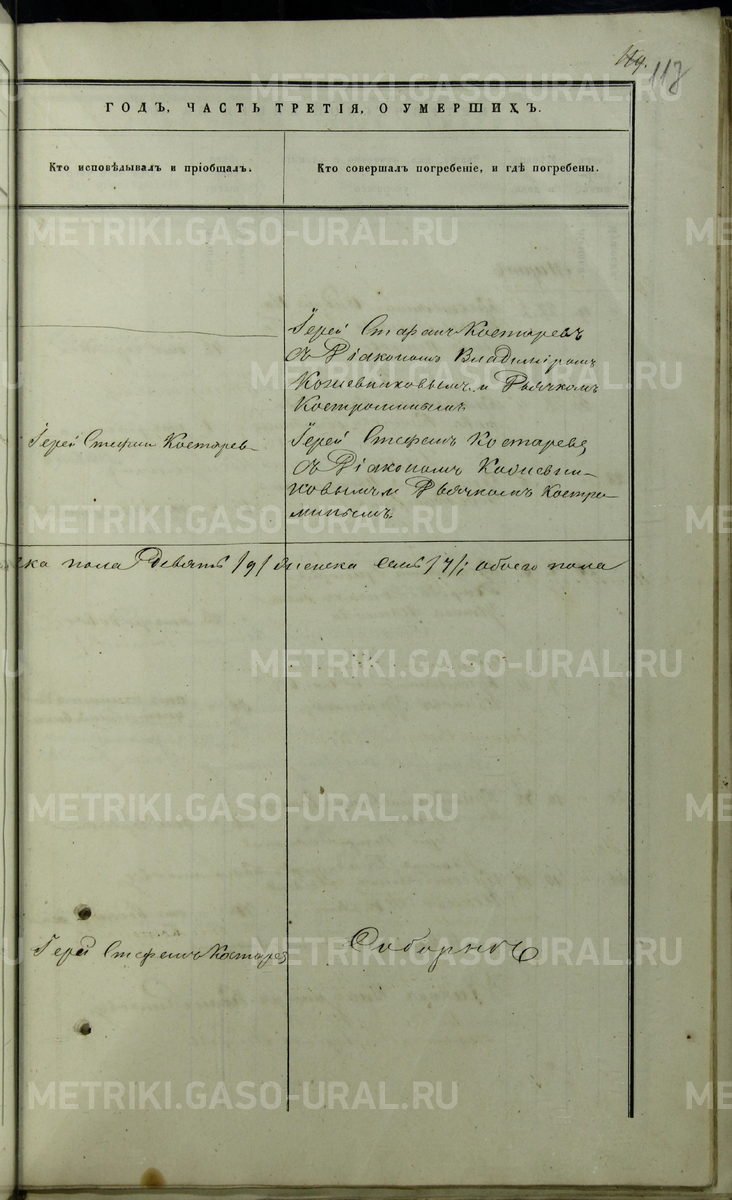 119. 118
ГОДЪ, ЧАСТЬ ТРЕТІЯ, О УМЕРШИХЪ.
Кто исповѣдывалъ и пріобщалъ.
Кто совершалъ погребеніе, и гдѣ погребены.
Іерей Стефанъ Костаревъ
съ Діакономъ Владиміромъ
Кожевниковымъ и Дьячкомъ
Костроминымъ
Іерей Стефанъ Костарев
Іерей Стефанъ Костаревъ,
съ Діакономъ Кожевни-
ковымъ и Дьячкомъ Костро-
минымъ
ска пола Девять /9/ женска семь /7/; обоего пола
Іерей Стефанъ Костарев
Соборнѣ
METRIKI.GASO-URAL.RU